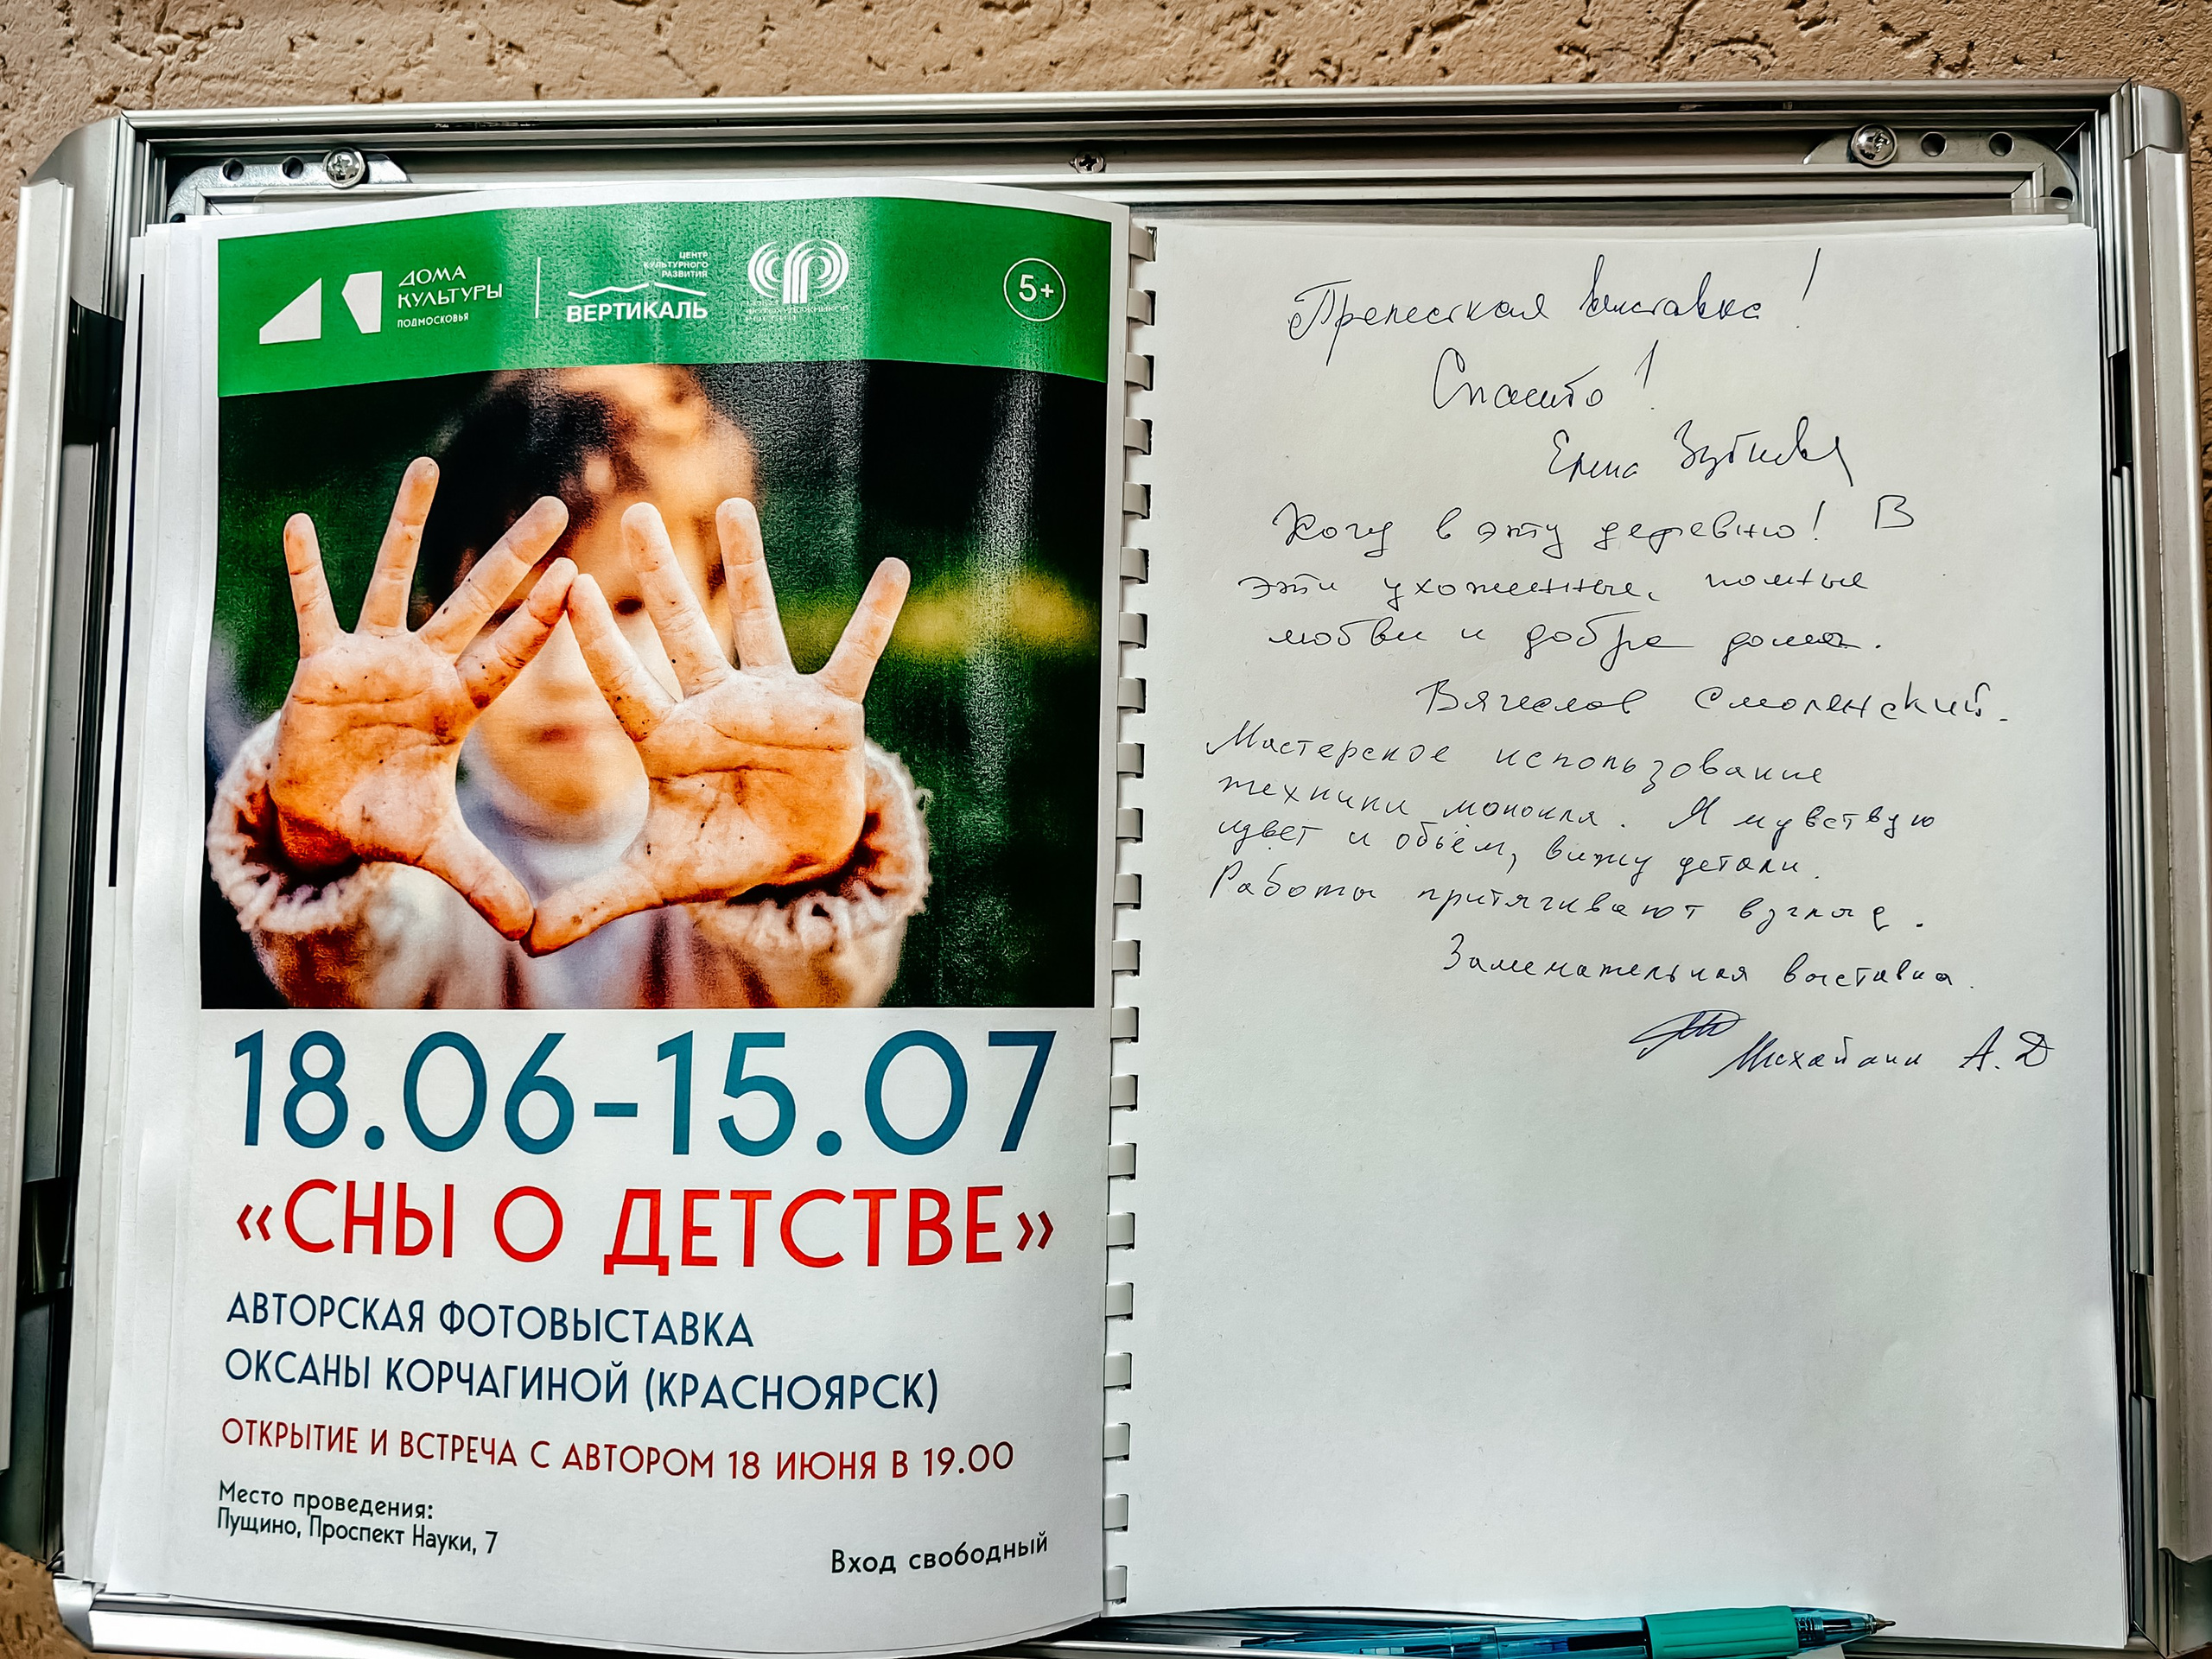 ДОМА
КУЛЬТУРЫ
ПОДМОСКОВЬЯ
ЦЕНТР
КУЛЬТУРНОГО
РАЗВИТИЯ
ВЕРТИКАЛЬ
ФОТОХУДОЖНИКОВ
РОССИИ
5+
18.06-15.07
«СНЫ О ДЕТСТВЕ»
АВТОРСКАЯ ФОТОВЫСТАВКА
ОКСАНЫ КОРЧАГИНОЙ (КРАСНОЯРСК)
ОТКРЫТИЕ И ВСТРЕЧА С АВТОРОМ 18 ИЮНЯ В 19.00
Место проведения:
Пущино, Проспект Науки, 7
Вход свободный
выставка!
Спасибо!
Елена
Хочу в эту деревню! В
эти ухоженные, полные
любви и добра дома.
Вячеслав Смоленский.
Мастерское использование
техники монокля. Я чувствую
цвет и объём, вижу детали.
Работы притягивают взгляд.
Замечательная выставка.
А.Д